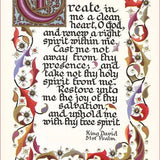 Create in
me a clean
heart, O God,
and renew a right
spirit within me.
Cast me not
away from thy
presence; and
take not thy holy
spirit from me.
Restore unto
me the joy of thy
salvation;
and uphold me
with thy free spirit.
King David
51st Psalm